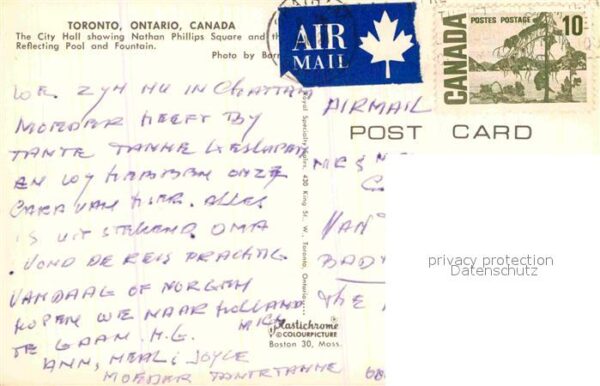 TORONTO, ONTARIO, CANADA
The City Hall showing Nathan Phillips Square and th
Reflecting Pool and Fountain.
Photo by Bar
AIR
MAIL
CANADA
POSTES POSTAGE
10
AIRMAIL
POST CARD
WE ZYN NU IN CHATTA
MOEDER HEEFT BY
TANTE TANNE GESLAPEN
EN WY HEBBEN ONZE
CARAVAN HIER. ALLES
IS UITSTEKEND OMA
VOND DE REIS PRACHTIG
VANDAAG OF MORGEN
HOPEN WE NAAR HOLLAND
TE GAAN H.G. MICH
ANN, NEAL & JOYCE
MOEDER TANTE TANNE
MRS
VAN
BAD
THE
Royal Specialty Sales, 430 King St., W., Toronto, Ontario
plastichrome
® COLOURPICTURE
Boston 30, Mass.
privacy protection
Datenschutz